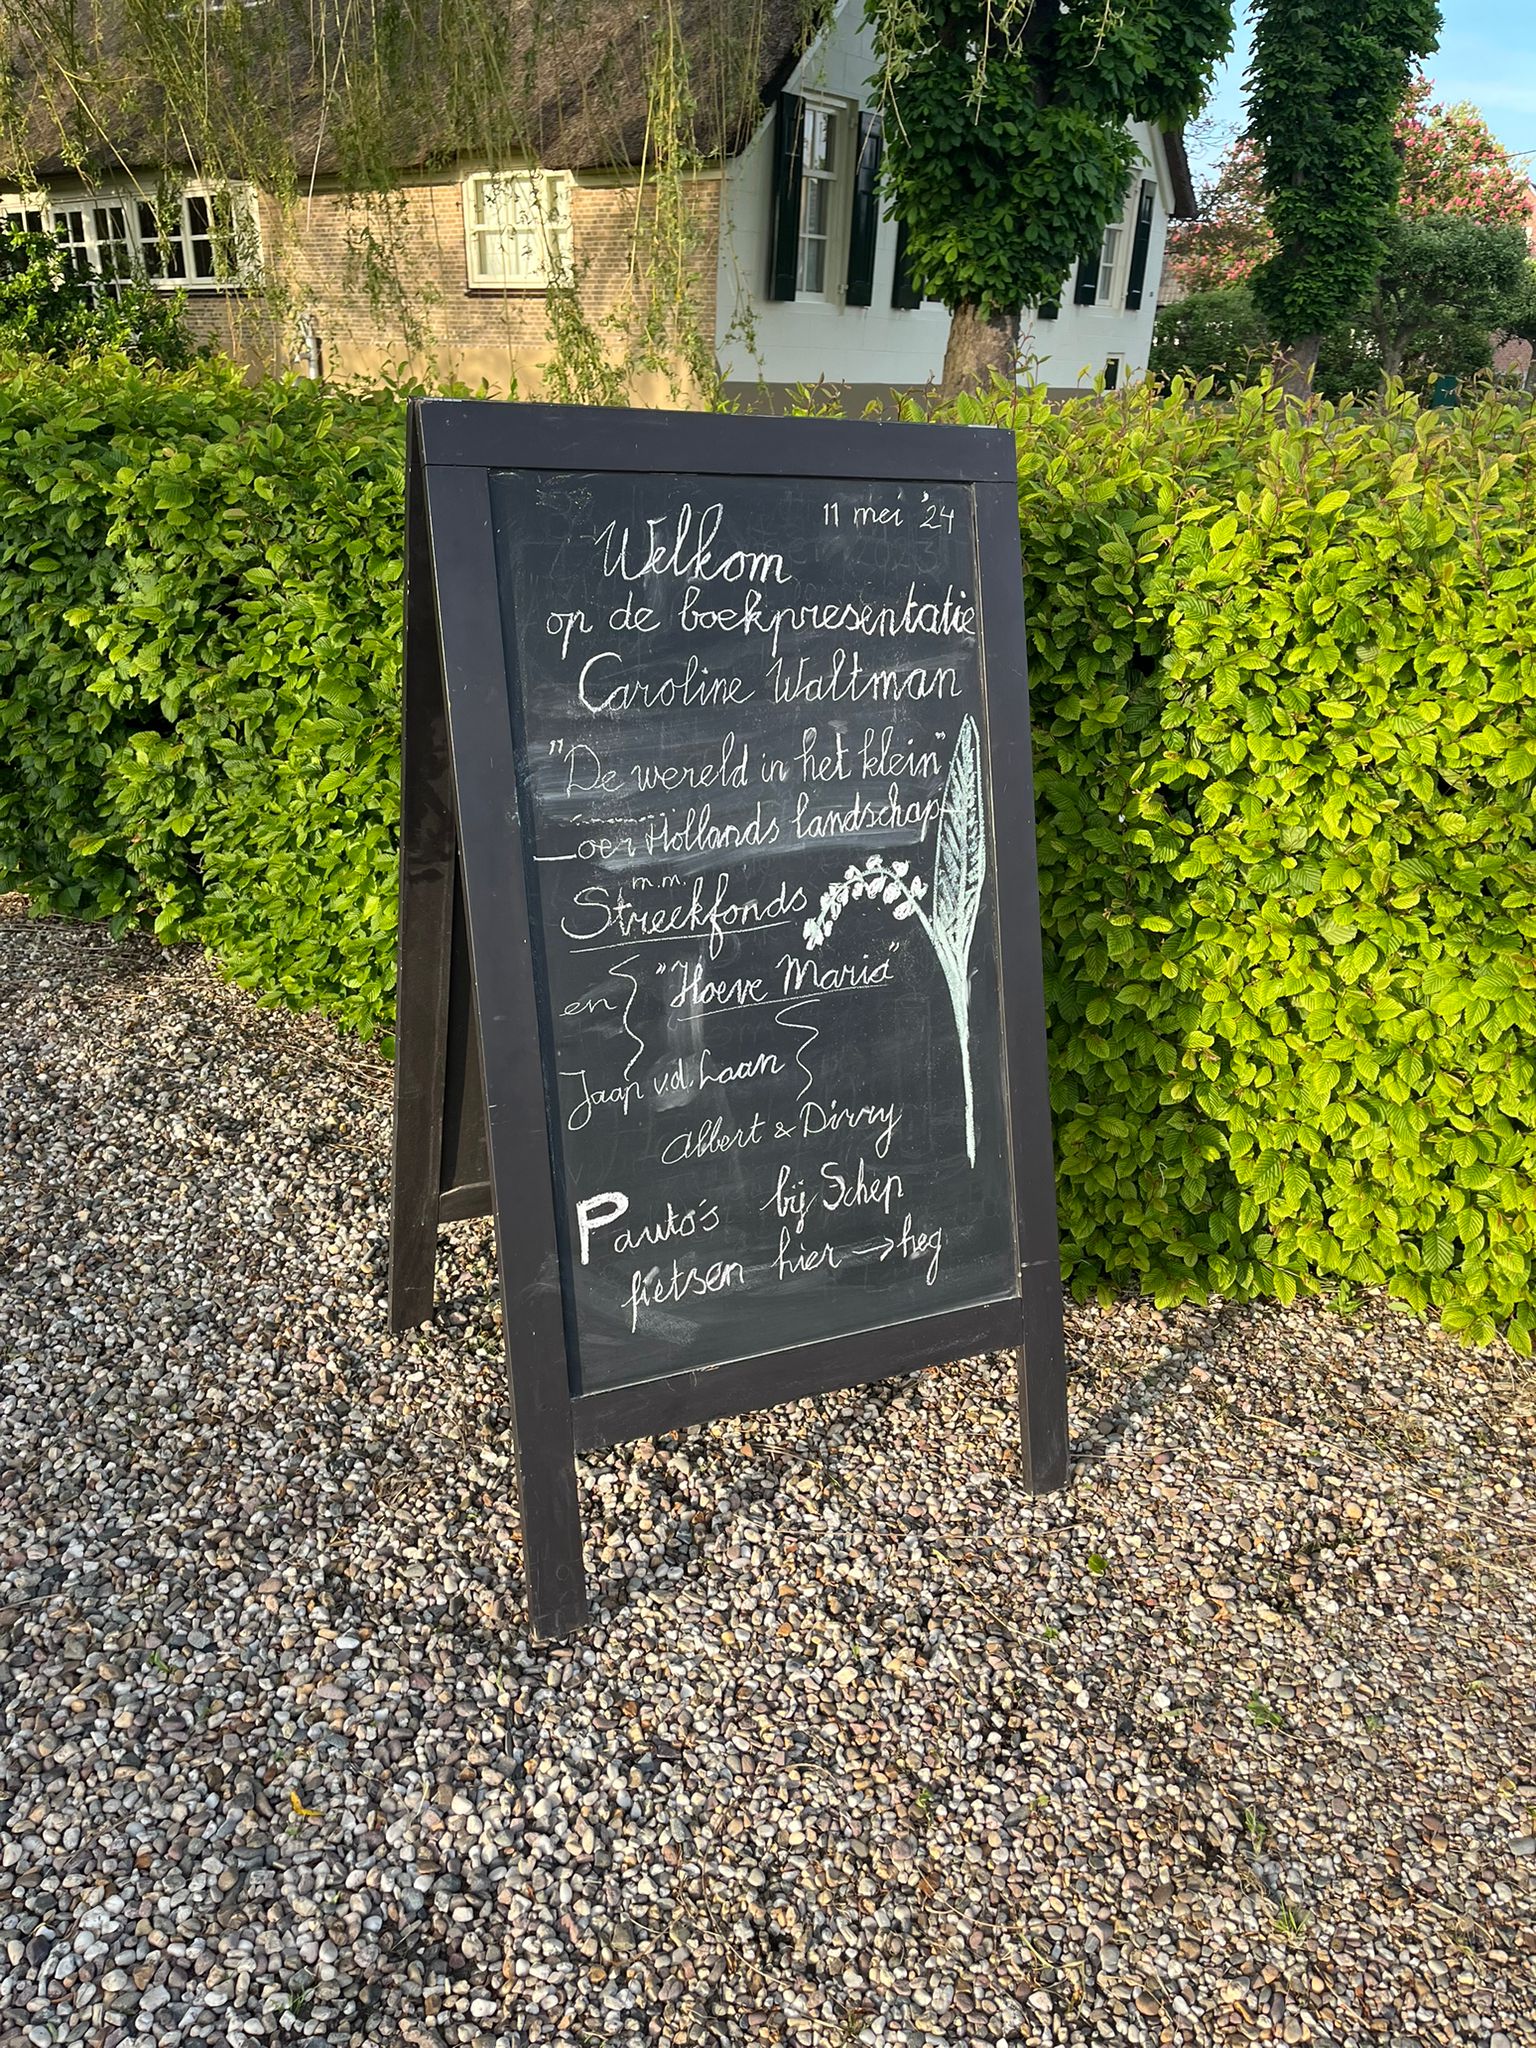 11 mei '24
Welkom
op de boekpresentatie
Caroline Waltman
"De wereld in het klein"
oer Hollands landschap
m.m.
Streekfonds
en "Hoeve Maria"
Jaap v.d. Laan
Albert & Dirry
P auto's bij Schep
fietsen hier → heg